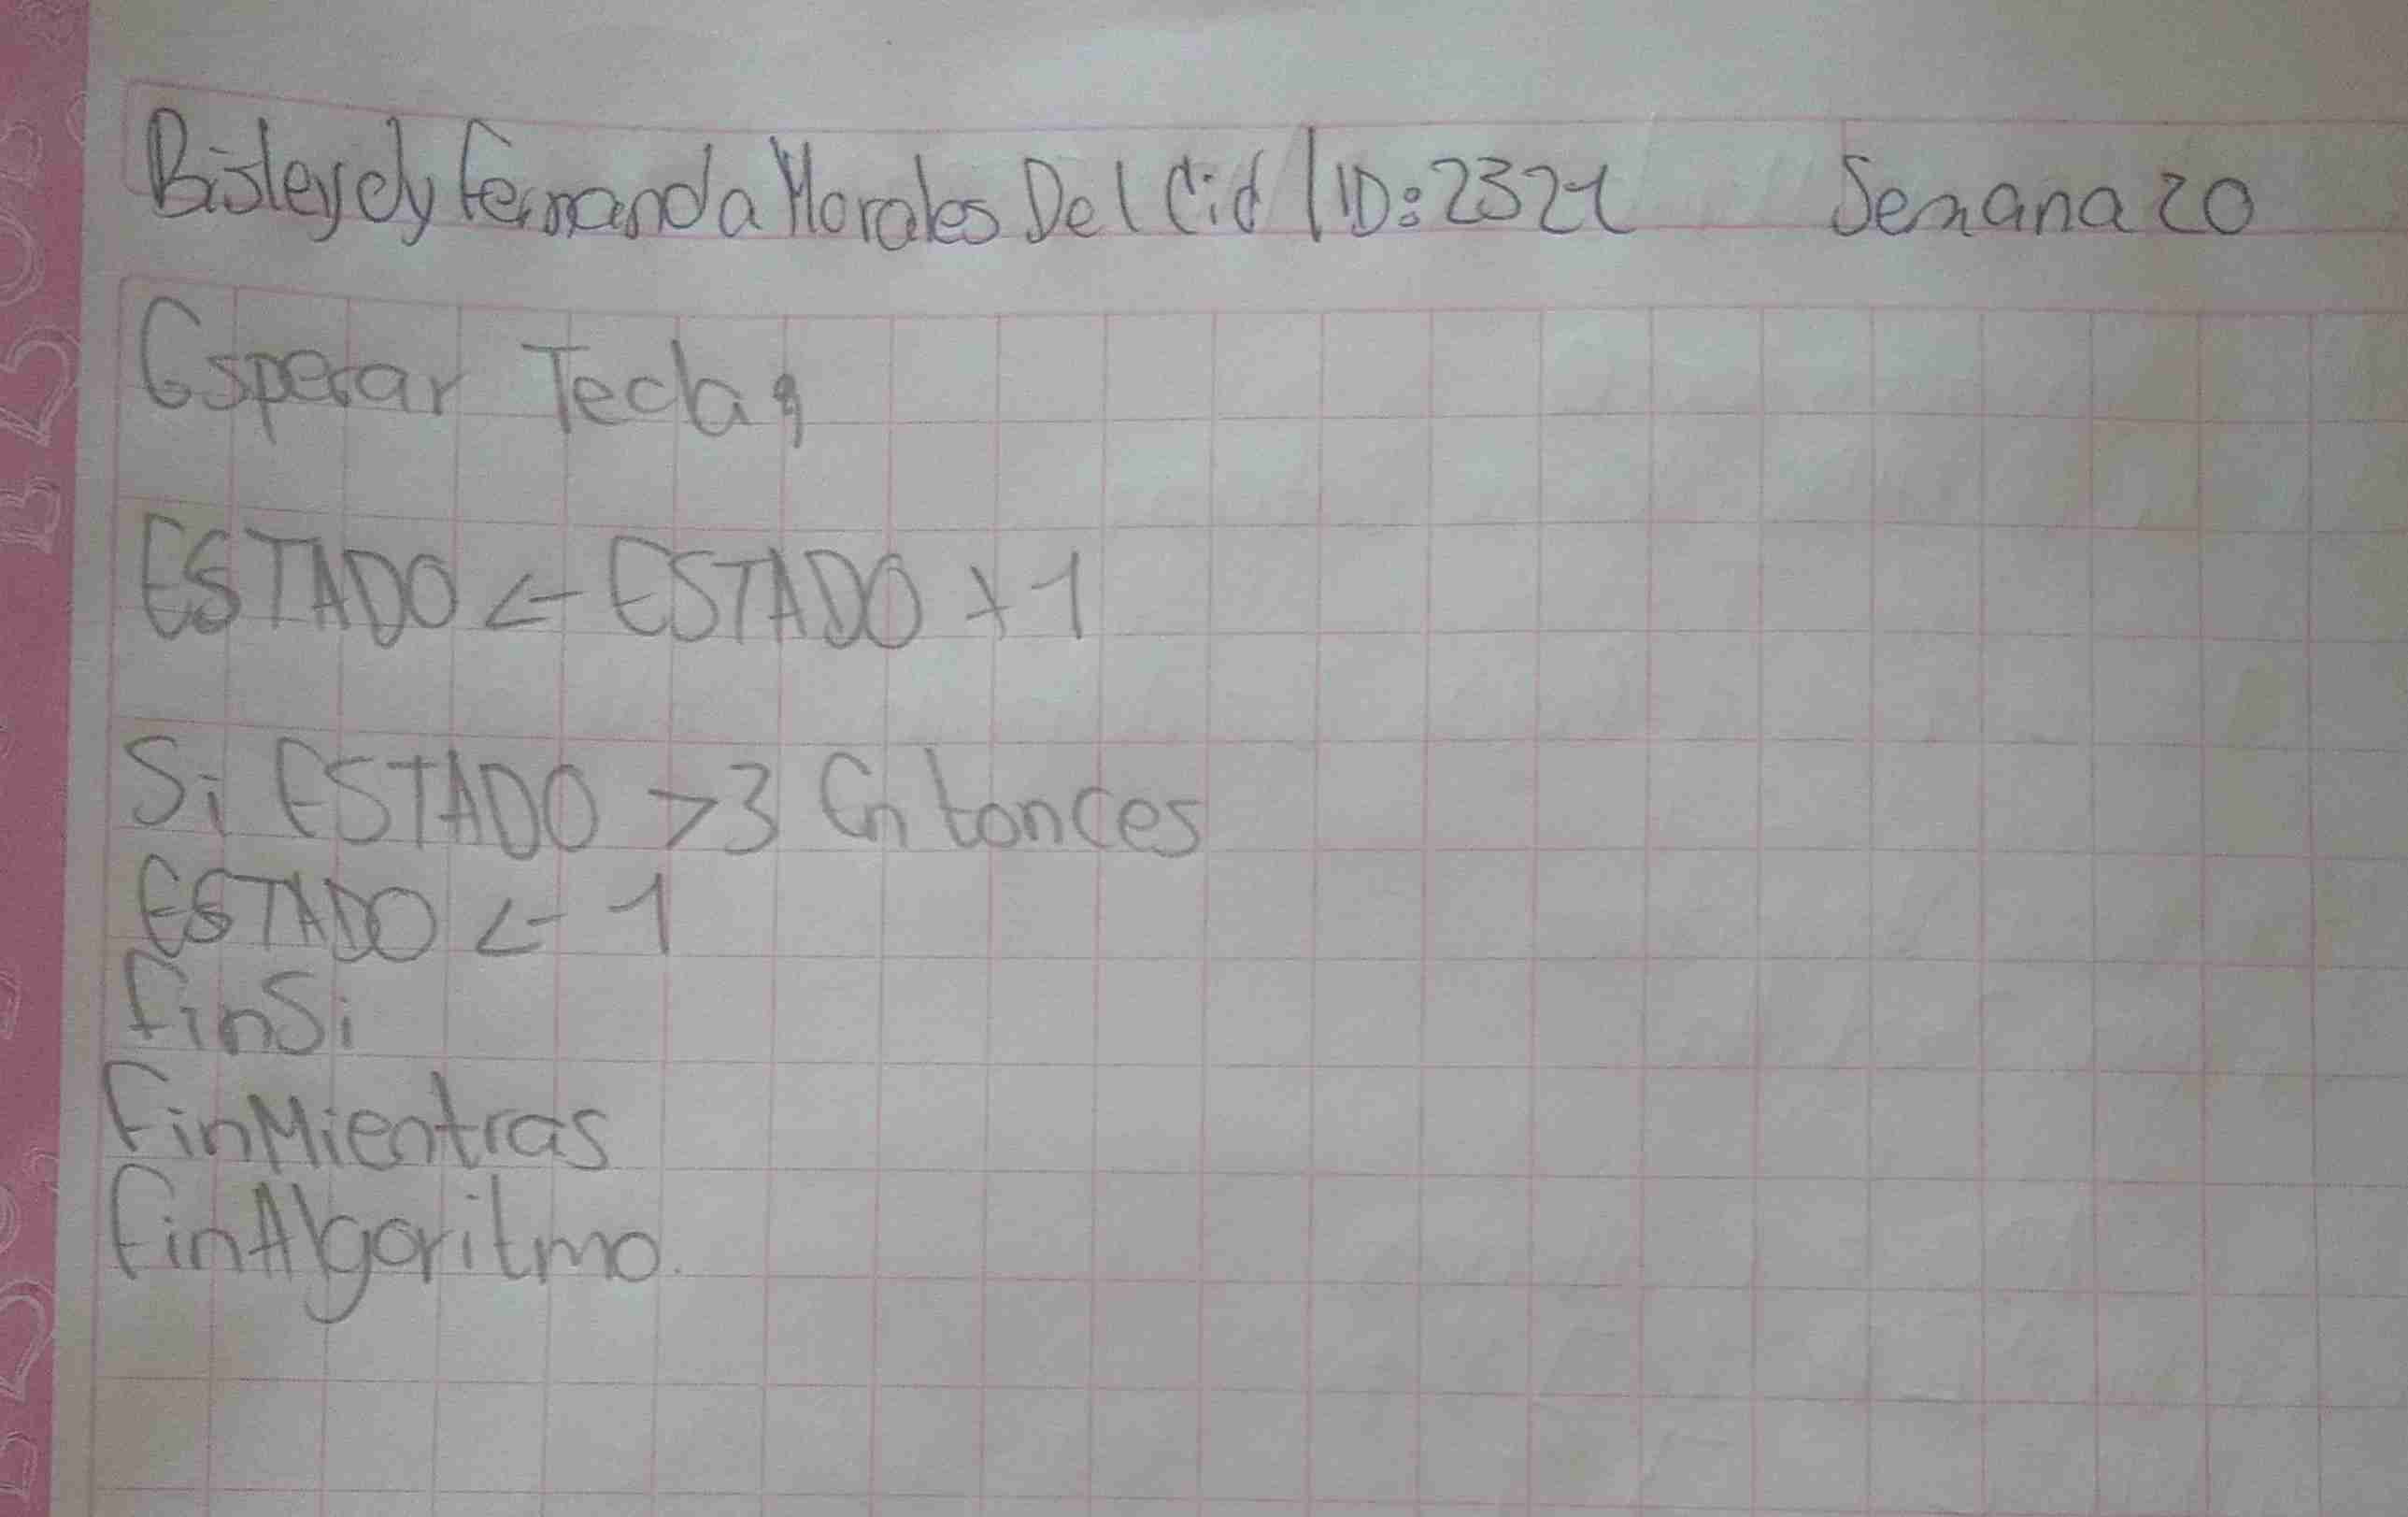 Bisleydy Fernanda Morales Del Cid | ID: 2321 Semana 20
Esperar Tecla;
ESTADO <- ESTADO + 1
Si ESTADO >3 Entonces
ESTADO <- 1
FinSi
FinMientras
FinAlgoritmo.